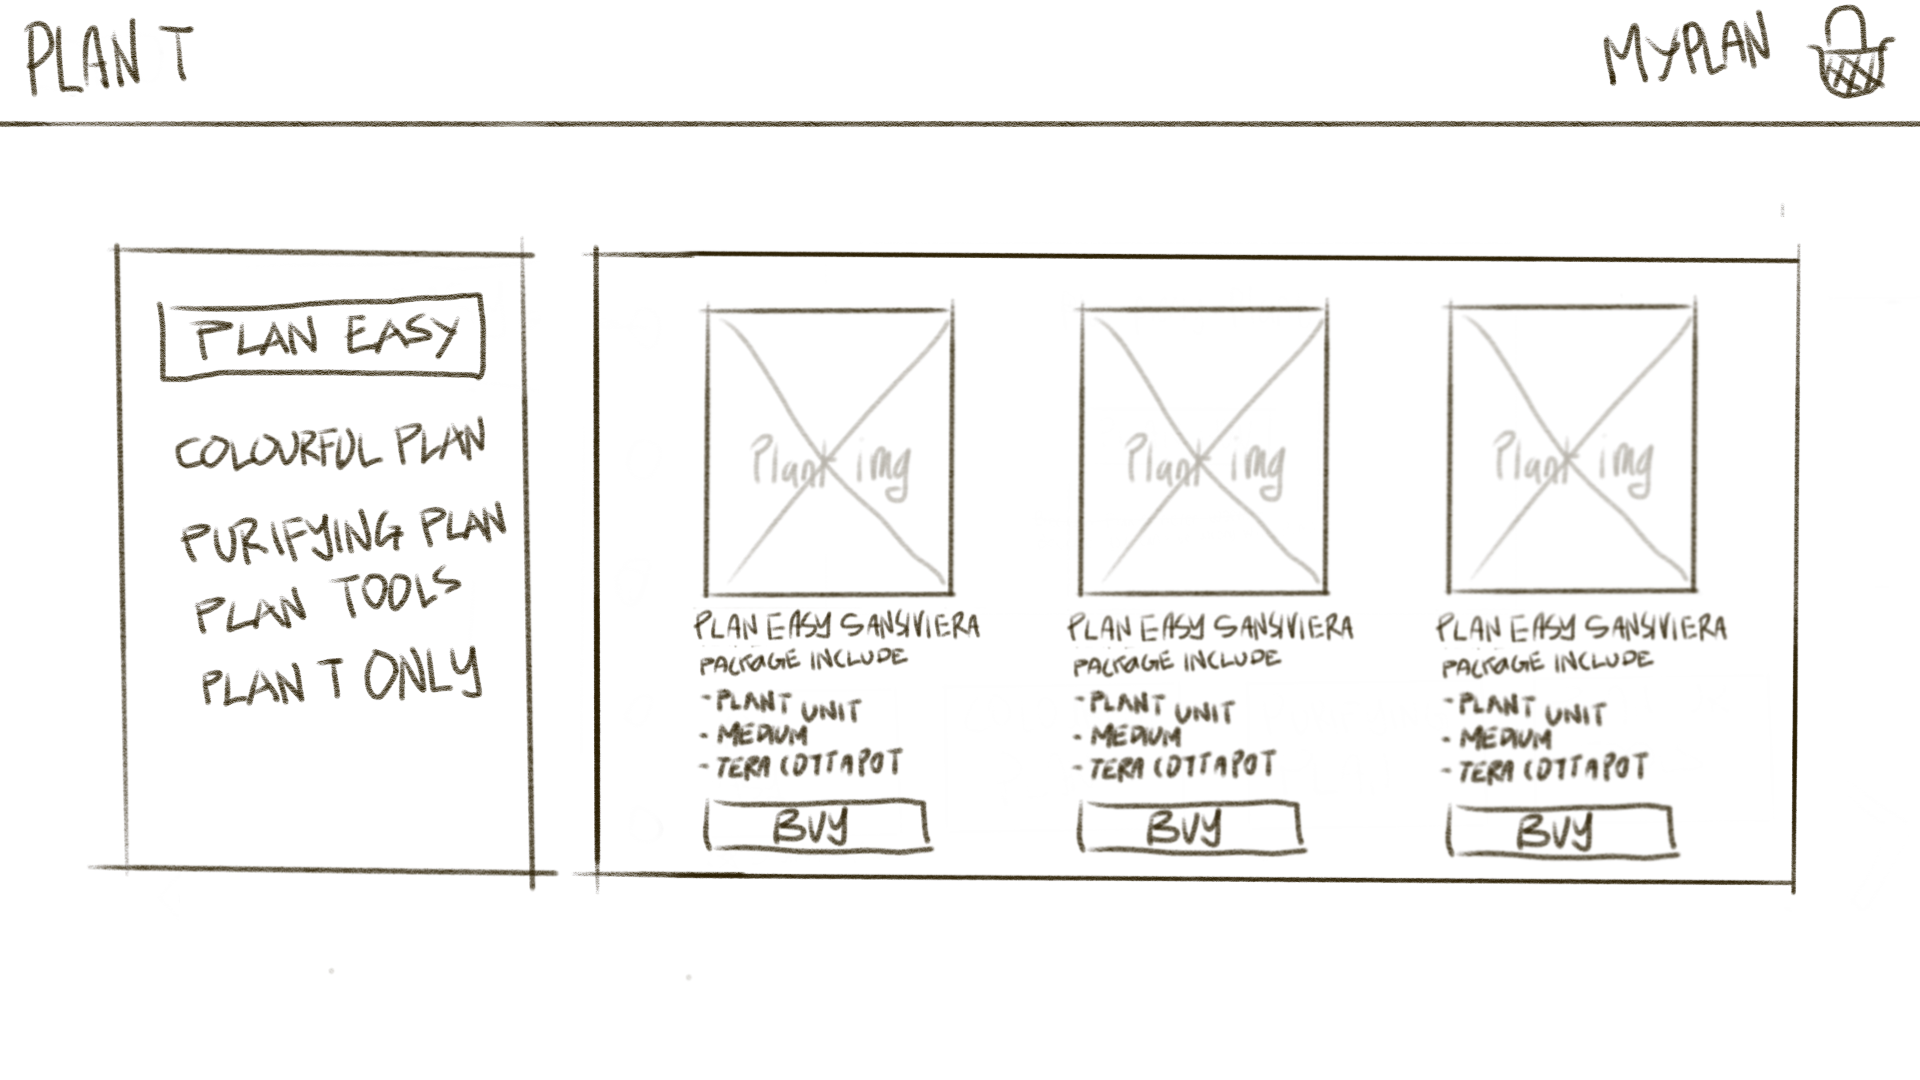 PLAN T
MYPLAN
PLAN EASY
COLOURFUL PLAN
PURIFYING PLAN
PLAN TOOLS
PLAN T ONLY
Plant img
PLAN EASY SANSIVIERA
PACKAGE INCLUDE
- PLANT UNIT
- MEDIUM
- TERA COTTA POT
BUY
Plant img
PLAN EASY SANSIVIERA
PACKAGE INCLUDE
- PLANT UNIT
- MEDIUM
- TERA COTTA POT
BUY
Plant img
PLAN EASY SANSIVIERA
PACKAGE INCLUDE
- PLANT UNIT
- MEDIUM
- TERA COTTA POT
BUY